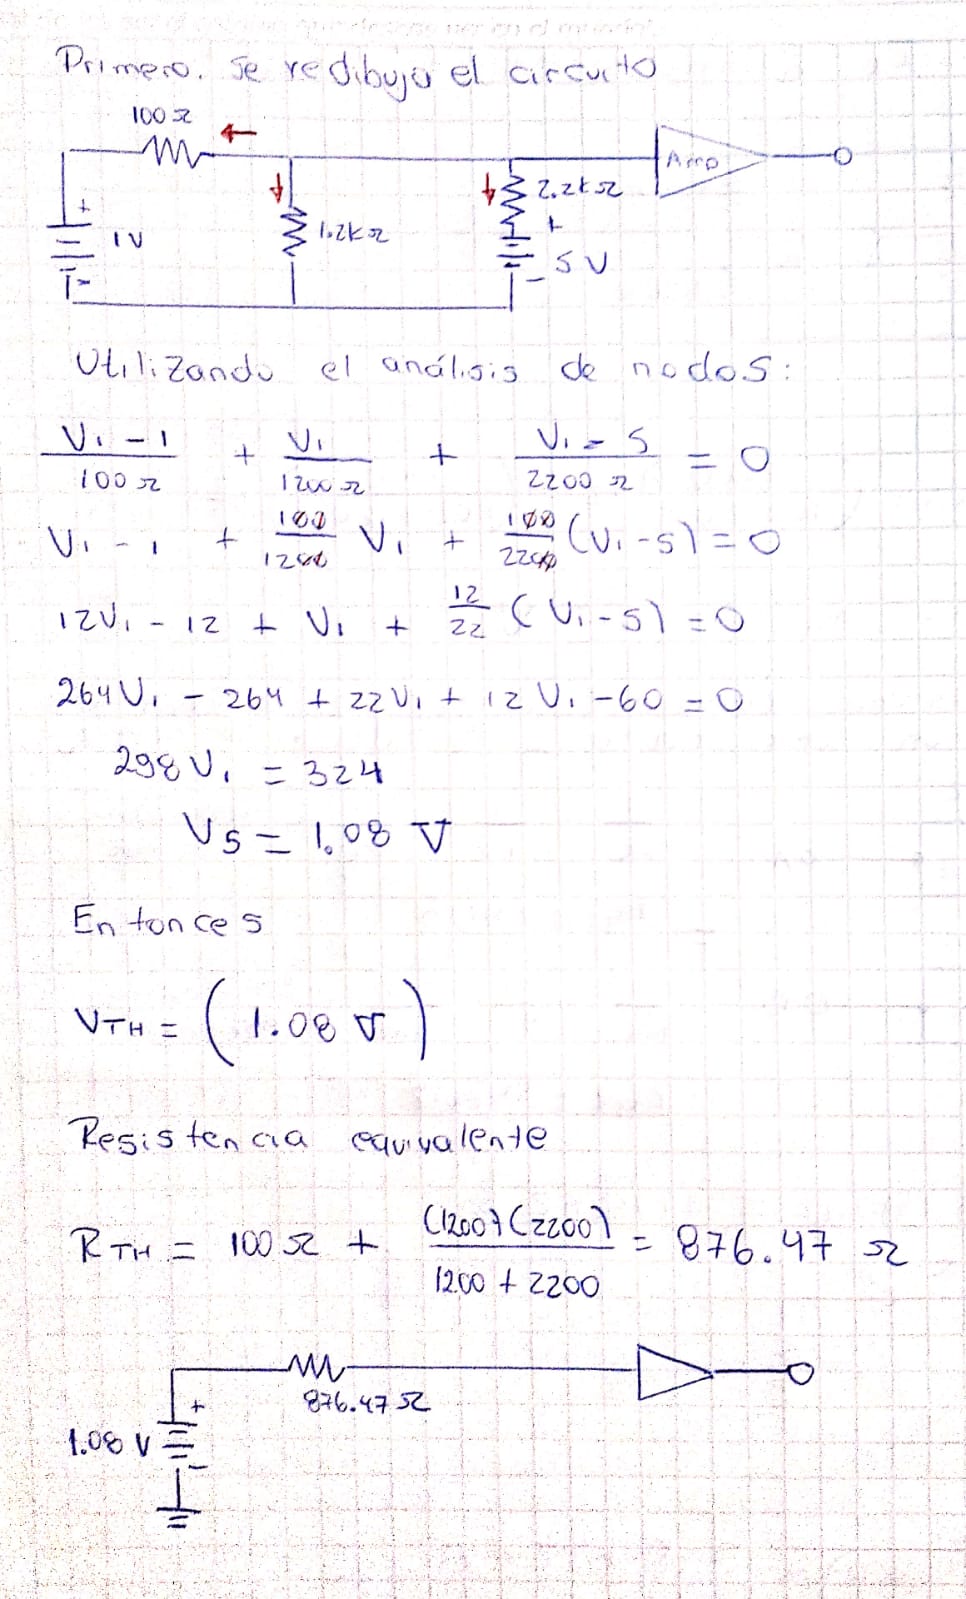 Primero. se redibuja el circuito
100 Ω
Amp
2.2k Ω
+
1.2k Ω
+
1V
5 V
-
-
Utilizando el análisis de nodos:
V₁ - 1 / 100 Ω + V₁ / 1200 Ω + V₁ - 5 / 2200 Ω = 0
V₁ - 1 + 100/1200 V₁ + 100/2200 (V₁ - 5) = 0
12V₁ - 12 + V₁ + 12/22 (V₁ - 5) = 0
264V₁ - 264 + 22V₁ + 12V₁ - 60 = 0
298V₁ = 324
VS = 1.08 V
Entonces
VTH = (1.08 V)
Resistencia equivalente
RTH = 100 Ω + (1200)(2200) / 1200 + 2200 = 876.47 Ω
876.47 Ω
+
1.08 V
-